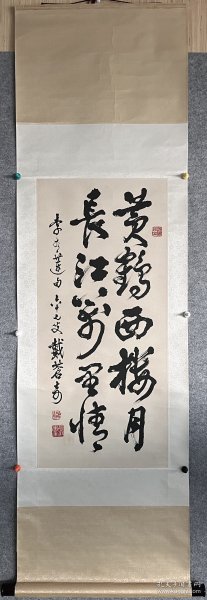 黄鹤西楼月
長江萬里情
李太白句 戴蒼奇